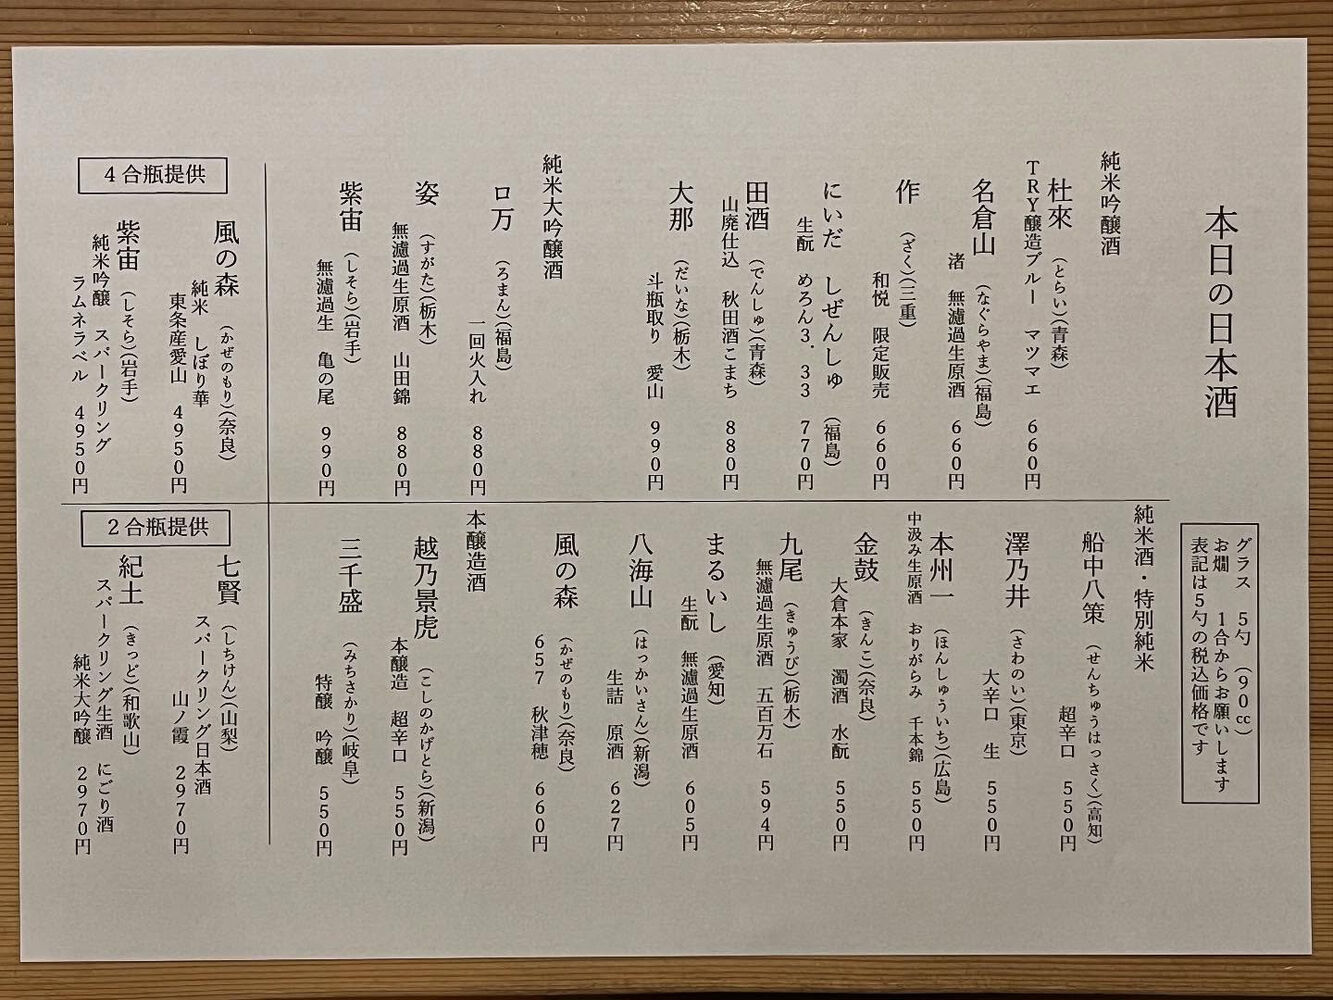 本日の日本酒
グラス　5勺　(90cc)
お燗　1合からお願いします
表記は5勺の税込価格です
純米吟醸酒
杜來　(とらい)(青森)
TRY醸造ブルー　マツマエ　660円
名倉山　(なぐらやま)(福島)
渚　無濾過生原酒　660円
作　(ざく)(三重)
和悦　限定販売　660円
にいだ　しぜんしゅ　(福島)
生酛　めろん3．33　770円
田酒　(でんしゅ)(青森)
山廃仕込　秋田酒こまち　880円
大那　(だいな)(栃木)
斗瓶取り　愛山　990円
純米大吟醸酒
ロ万　(ろまん)(福島)
一回火入れ　880円
姿　(すがた)(栃木)
無濾過生原酒　山田錦　880円
紫宙　(しそら)(岩手)
無濾過生　亀の尾　990円
純米酒・特別純米
船中八策　(せんちゅうはっさく)(高知)
超辛口　550円
澤乃井　(さわのい)(東京)
大辛口　生　550円
本州一　(ほんしゅういち)(広島)
中汲み生原酒　おりがらみ　千本錦　550円
金鼓　(きんこ)(奈良)
大倉本家　濁酒　水酛　550円
九尾　(きゅうび)(栃木)
無濾過生原酒　五百万石　594円
まるいし　(愛知)
生酛　無濾過生原酒　605円
八海山　(はっかいさん)(新潟)
生詰　原酒　627円
風の森　(かぜのもり)(奈良)
657　秋津穂　660円
本醸造酒
越乃景虎　(こしのかげとら)(新潟)
本醸造　超辛口　550円
三千盛　(みちさかり)(岐阜)
特醸　吟醸　550円
4合瓶提供
風の森　(かぜのもり)(奈良)
純米　しぼり華
東条産愛山　4950円
紫宙　(しそら)(岩手)
純米吟醸　スパークリング
ラムネラベル　4950円
2合瓶提供
七賢　(しちけん)(山梨)
スパークリング日本酒
山ノ霞　2970円
紀土　(きっど)(和歌山)
スパークリング生酒　にごり酒
純米大吟醸　2970円